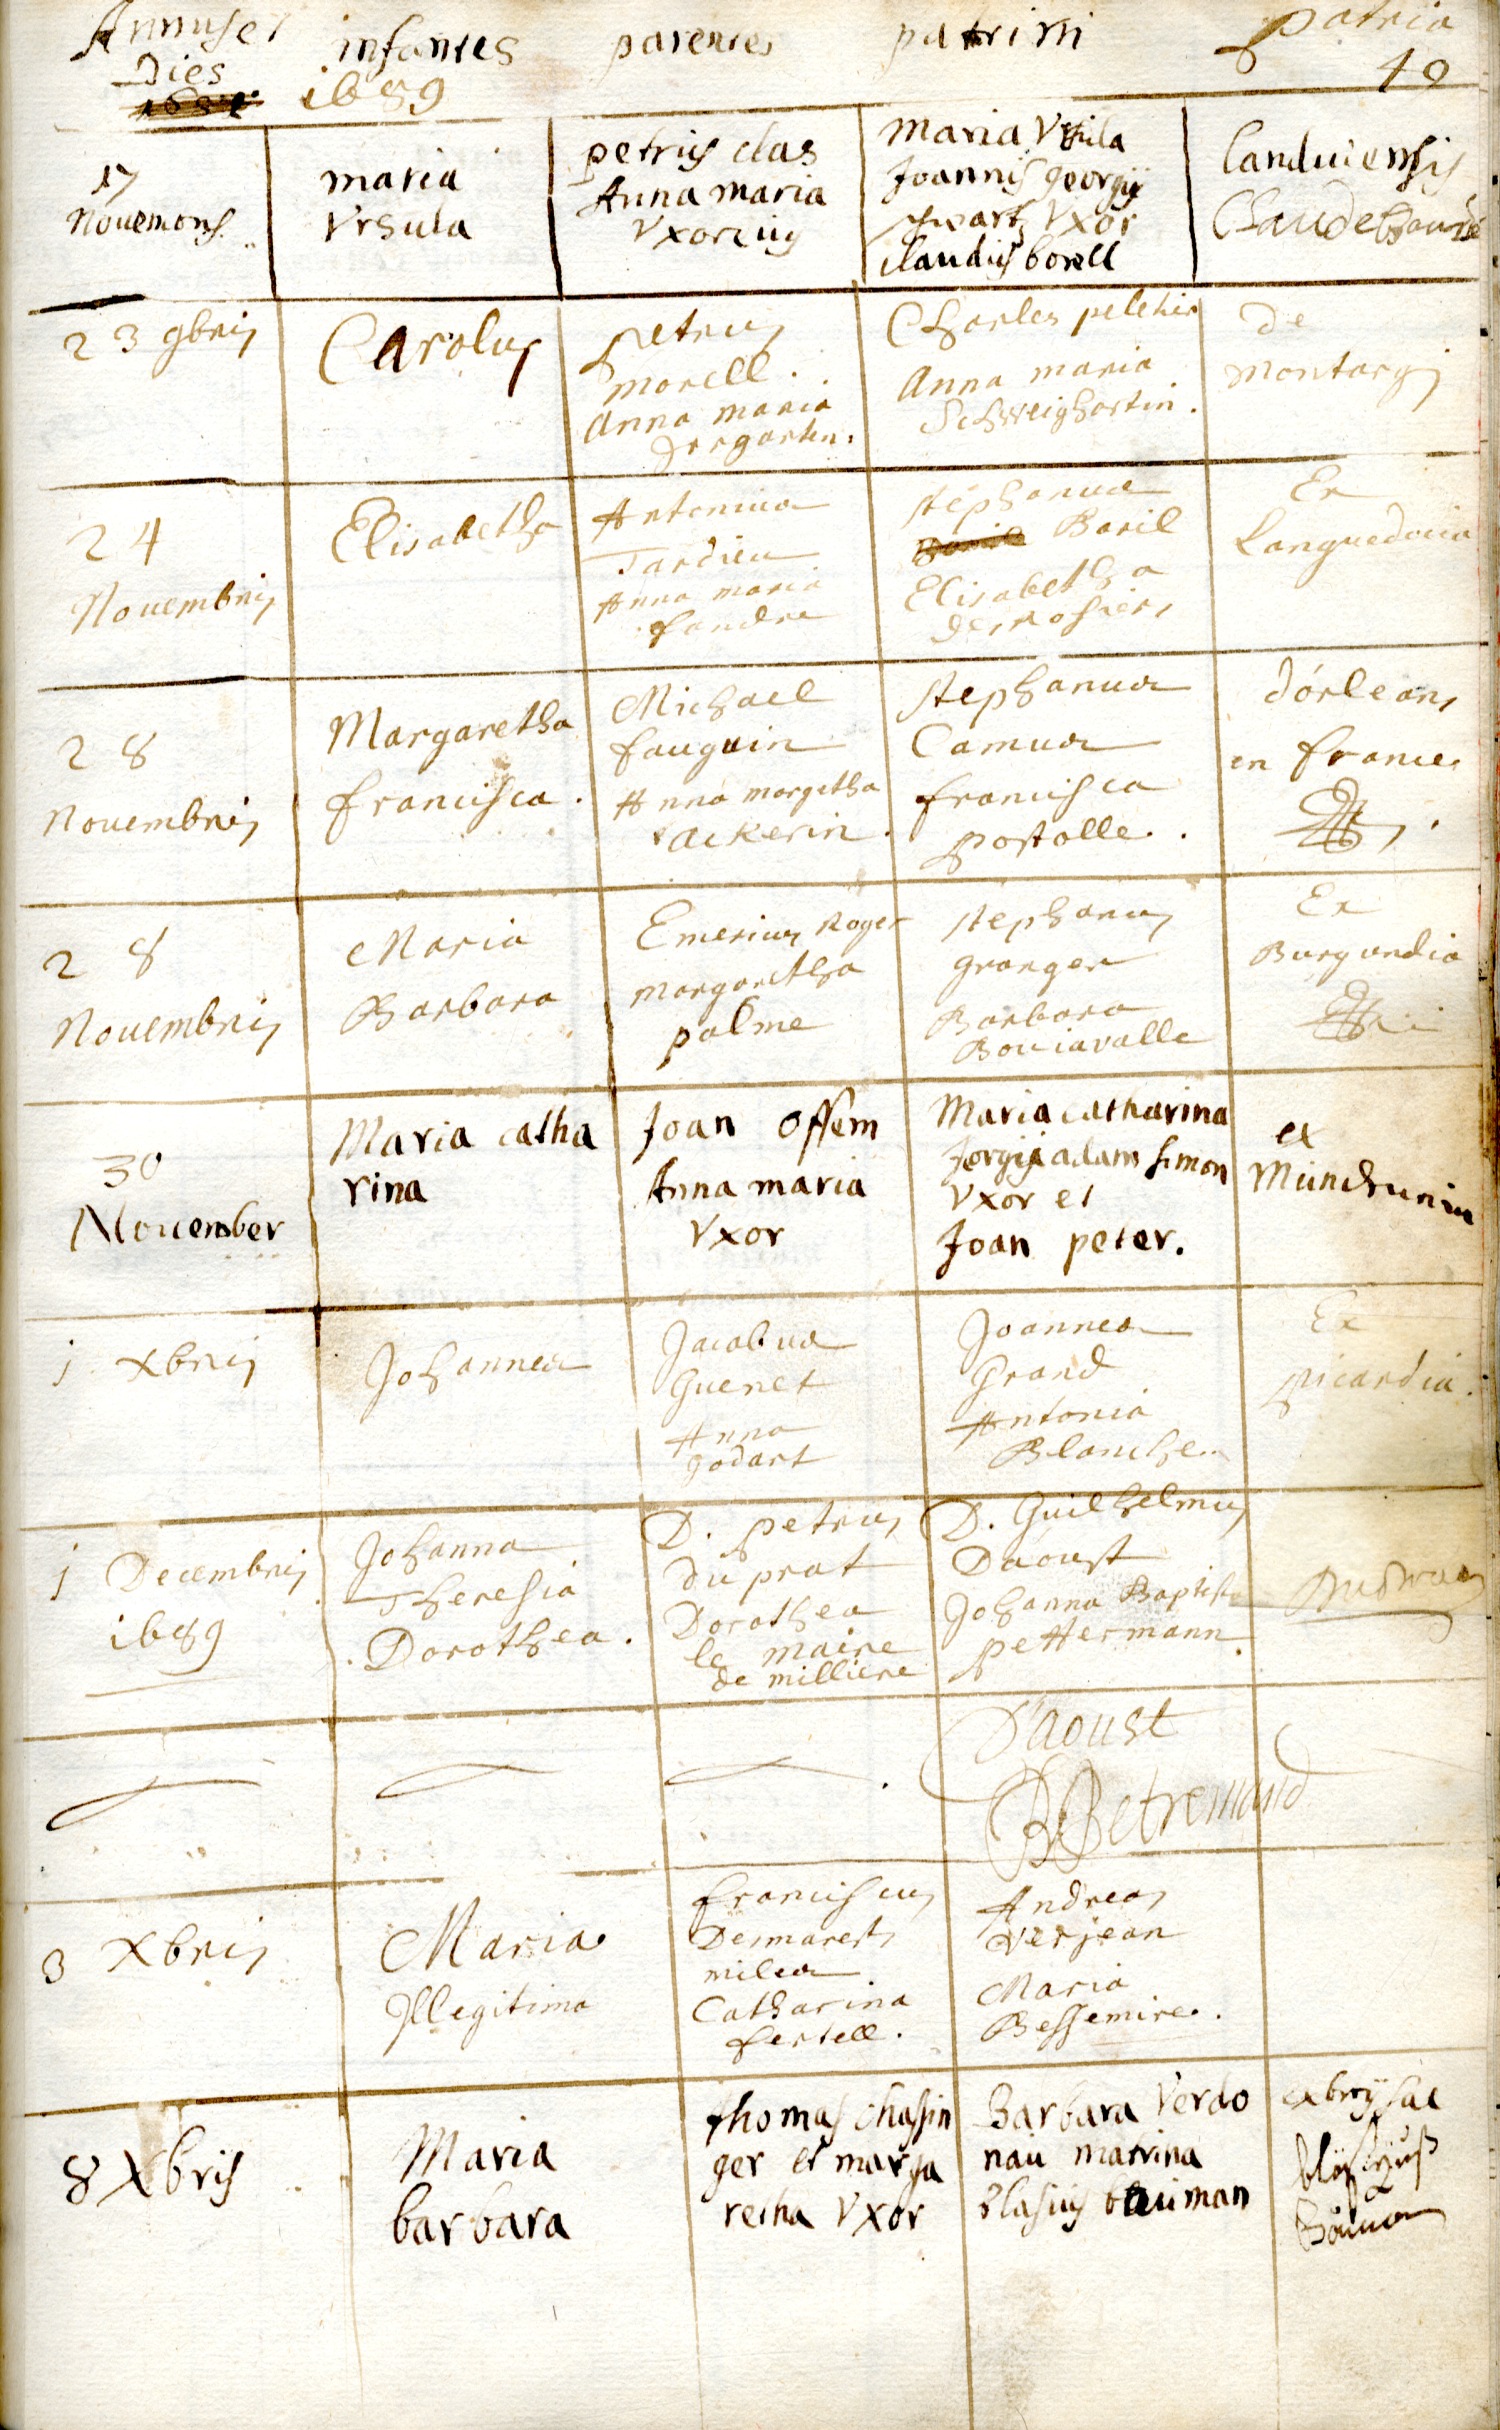 Annus et infantes parentes patrini patria
Dies 1689 40
17 Nouembris
maria
Vrsula
petrus clas
Anna maria
Vxor eius
maria Vrsula
Joannis georgij
swartz Vxor
claudius borell
23 9bris
Carolus
petrus
morell.
Anna maria
Charles peletier
Anna maria
Schweighartin.
de
montargis
24
Nouembris
Elisabetha
Antonius
Tardieu
Anna maria
fandre
stephanus
Baril
Elisabetha
desrosiers
Ex
Languedocia
28
Nouembris
Margaretha
francisca.
Michael
fauquin
Anna margetha
ackerin.
stephanus
Camus
francisca
postolle.
d'orleans
en france
28
Nouembris
Maria
Barbara
Emerius Roger
margaretha
palme
stephanus
granger
Barbara
Boniavalle
Ex
Burgundia
30
Nouember
Maria catha
rina
Joan offem
Anna maria
Vxor
Maria catharina
Jorgij adam simon
Vxor et
Joan peter.
ex
1 Xbris
Johannes
Jacobus
Guenet
Anna
godart
Joannes
Grand
Antonia
Blanche
Ex
picardia.
1 Decembris
1689
Johanna
Theresia
Dorothea.
D. petrus
du prat
Dorothea
le maire
de milliere
D. Guilhelmus
Daoust
Johanna Baptista
pettermann.
Daoust
Betremand
3 Xbris
Maria
Illegitima
franciscus
Desmarests
miles
Catharina
fertell.
Andreas
verjean
Maria
Bessemire.
8 Xbris
Maria
barbara
thomas chassin
ger et marga
retha Vxor
Barbara Verdo
nau matrina
blasius bauman
ex brysac